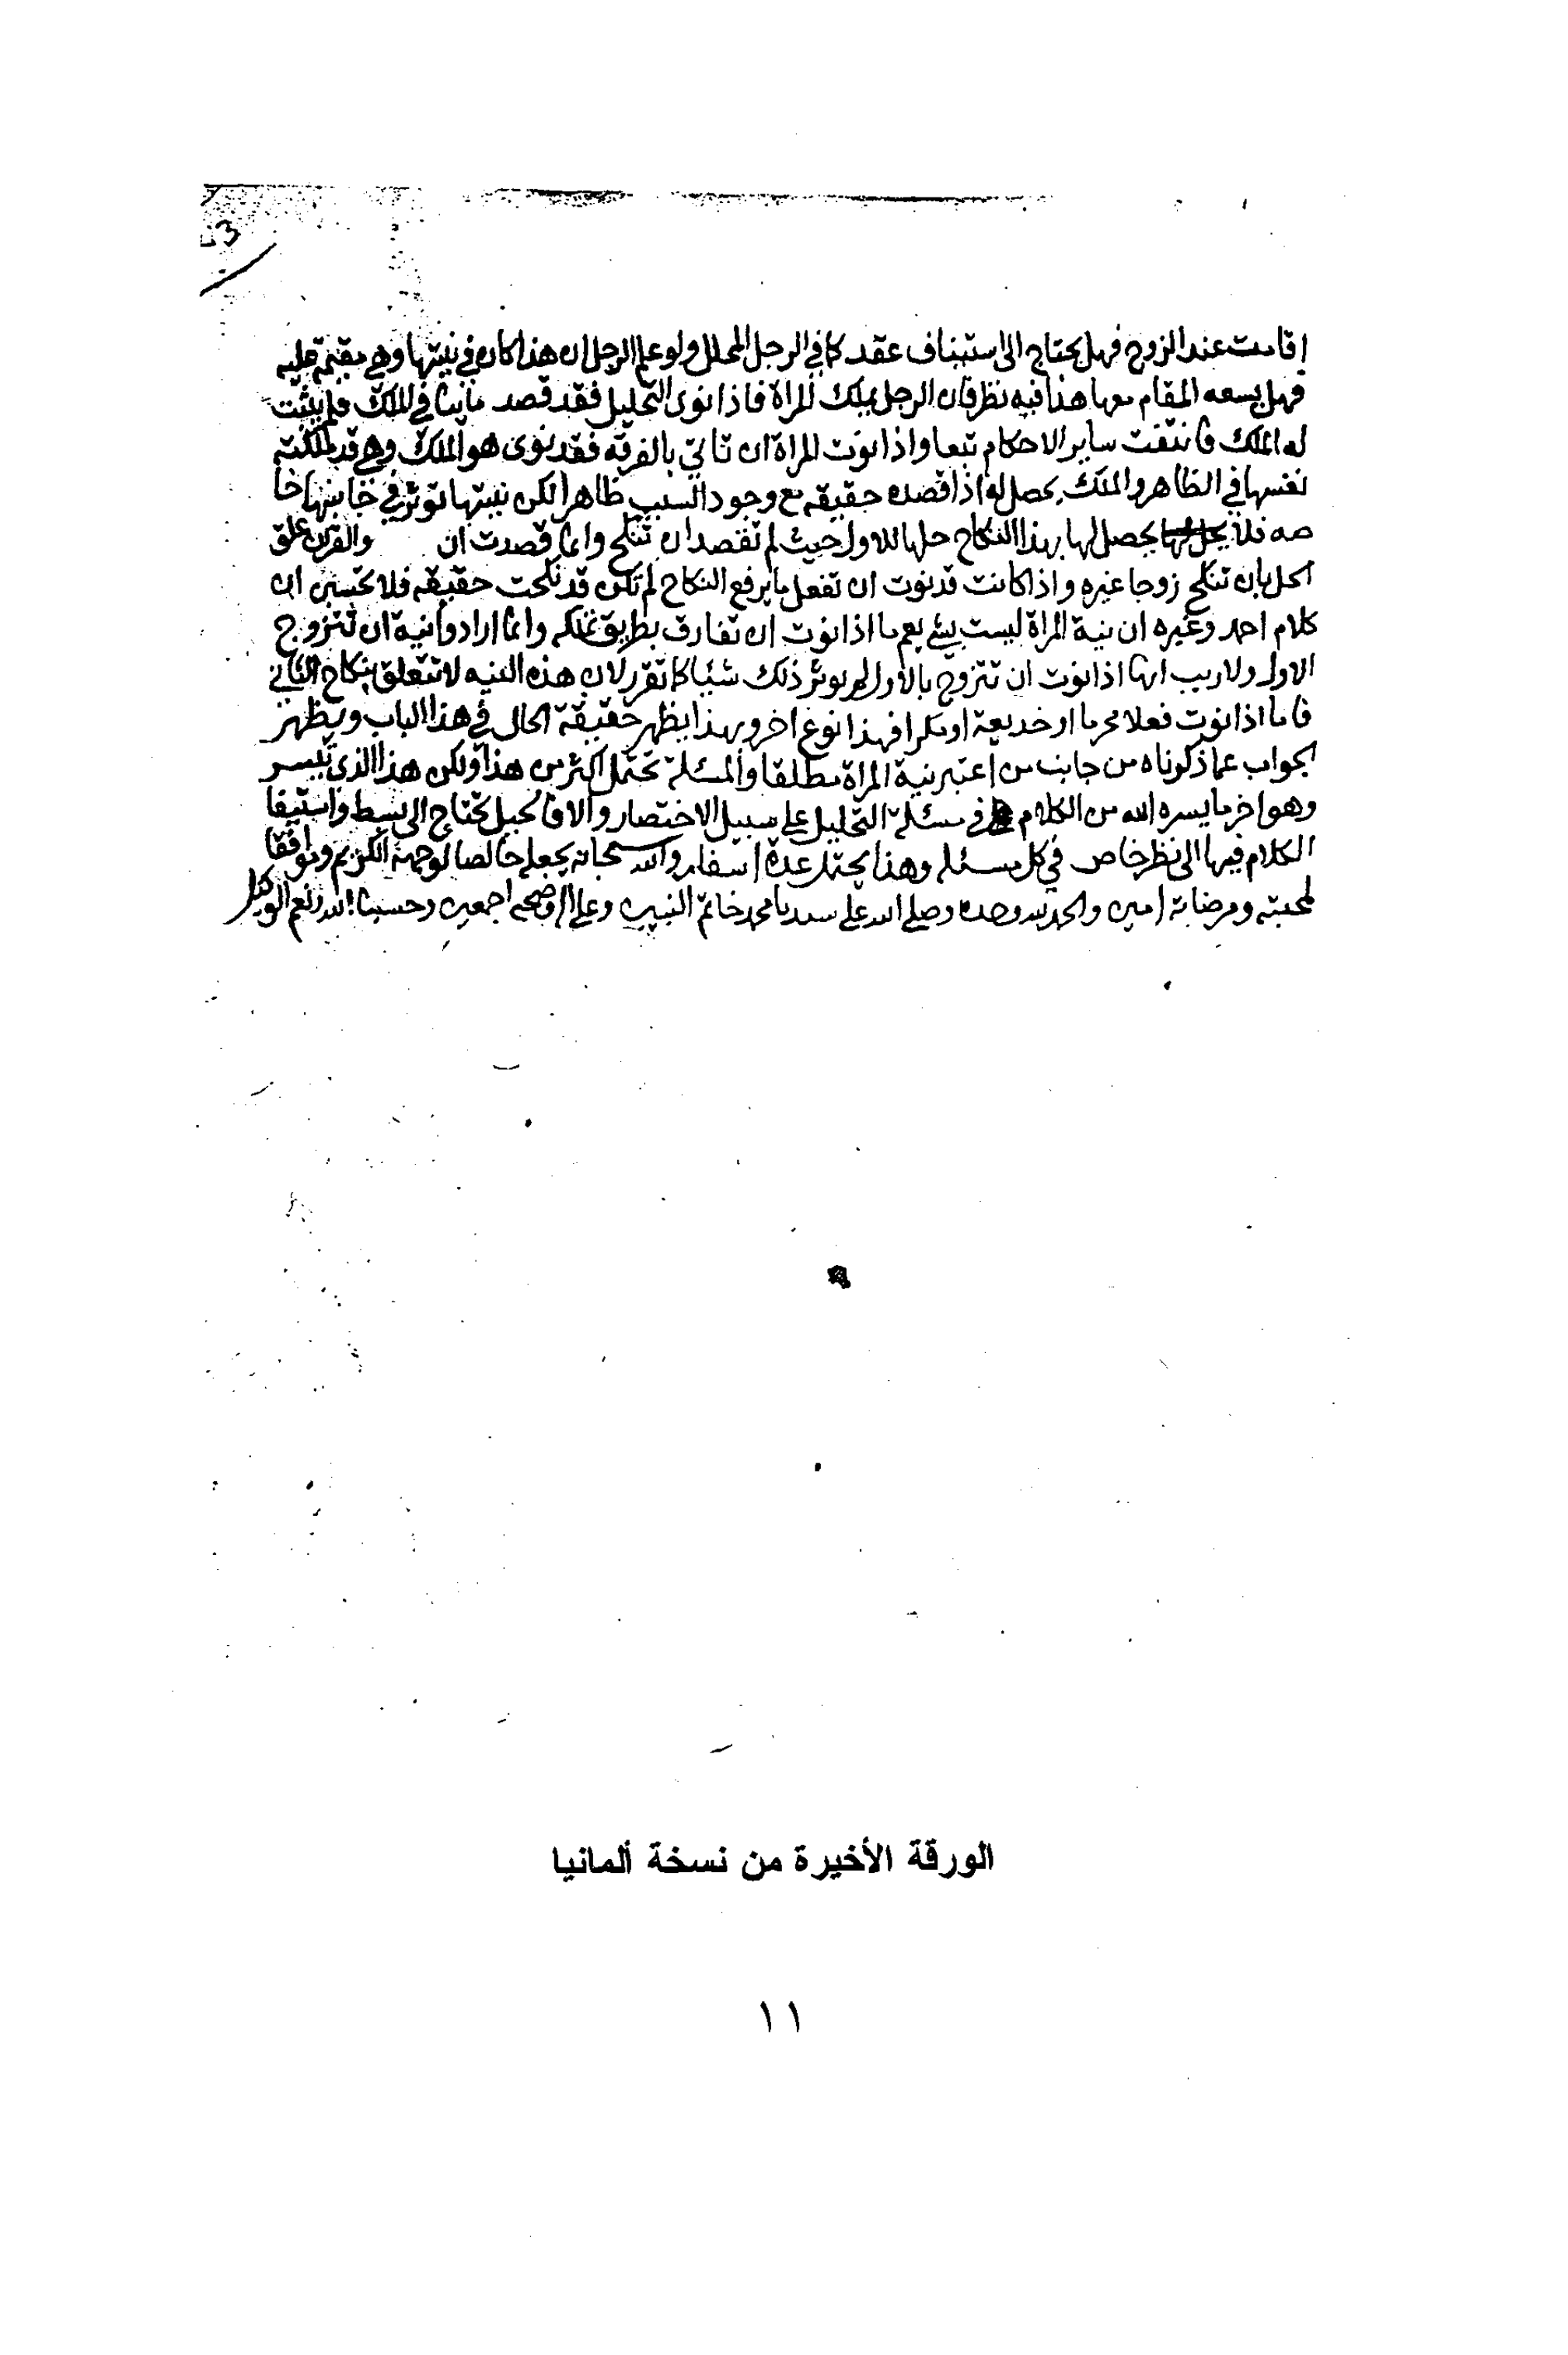 اقامت عند الزوج فهل يحتاج الى استيناف عقد كما في الرجل المحلل ولو علم الرجل ان هذا كان في نيتها وهي مقيمة عليه
فهل يسعه المقام معها هذا فيه نظر فان الرجل يملك المراة فاذا نوى التحليل فقد قصد ما ينافي الملك فلم يثبت
له الملك فانتفت ساير الاحكام تبعا واذا نوت المراة ان تاتي بالفرقه فقد نوى هو الملك وهي قد ملكته
نفسها في الظاهر والملك يحصل له اذا قصده حقيقه مع وجود السبب ظاهرا لكن نيتها توثر في جانبها خا
صه فلا يحصل لها بهذا النكاح حلها للاول حيث لم تقصد ان تنكح وانما قصدت ان والقران علق
الحل بان تنكح زوجا غيره واذا كانت قد نوت ان تفعل ما يرفع النكاح لم تكن قد نكحت حقيقه فلا تحسبن ان
كلام احمد وغيره ان نية المراة ليست بشي يعم ما اذا نوت ان تفارق بطريق تملكه وانما ارادوا نية ان تتزوج
الاول ولا ريب انها اذا نوت ان تتزوج بالاول لم يوثر ذلك شيا كما تقرر لان هذه النيه لا تتعلق بنكاح الثاني
فاما اذا نوت فعلا محرما او خديعة او مكرا فهذا نوع اخر وبهذا يظهر حقيقة الحال في هذا الباب ويظهر
الجواب عما ذكرناه من جانب من اعتبر نية المراة مطلقا والمسئلة تحتمل اكثر من هذا ولكن هذا الذي تيسر
وهو اخر ما يسره الله من الكلام في مسئلة التحليل على سبيل الاختصار والا فالحيل تحتاج الى بسط واستيفا
الكلام فيها الى نظر خاص في كل مسئله وهذا يحتمل عدة اسفار والله سبحانه يجعله خالصا لوجهه الكريم وموافقا
لمحبته ومرضاته امين والحمد لله وحده وصلى الله على سيدنا محمد خاتم النبيين وعلى اله وصحبه اجمعين وحسبنا الله ونعم الوكيل
الورقة الأخيرة من نسخة ألمانيا
١١